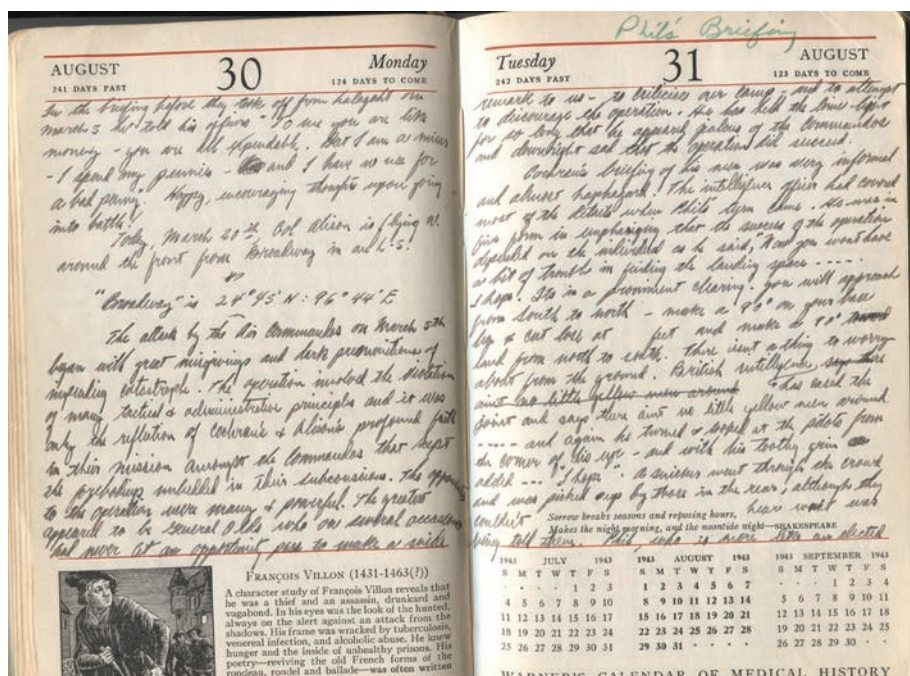 AUGUST 30 Monday
241 DAYS PAST 124 DAYS TO COME
In the briefing before they take off from halaghat on
march 5 he told his officers - "To me you are like
money - you are all expendable. But I am a miser
- I spend my pennies - and I have no use for
a bad penny. Happy, encouraging thoughts upon going
into battle!
Today, March 20th, Col Alison is flying a!
around the front from Broadway in an L-5!
"Broadway" is 24°45' N : 96° 44' E
The attack by the Air Commandos on March 5th
began with great misgivings and dark premonitions of
impending catastrophe. The operation involved the violation
of many tactical & administrative principles and it was
only the reflection of Cochran's & Alison's profound faith
in their mission amongst the Commandos that kept
the imbedded in their subconscious. The opposition
to the operation were many & powerful. The greatest
appeared to be General Olds who on several occasions
had never let an opportunity pass to make a snide
FRANÇOIS VILLON (1431-1463(?))
A character study of François Villon reveals that
he was a thief and an assassin, drunkard and
vagabond. In his eyes was the look of the hunted,
always on the alert against an attack from the
shadows. His frame was wracked by tuberculosis,
venereal infection, and alcoholic abuse. He knew
hunger and the inside of unhealthy prisons. His
poetry—reviving the old French forms of the
rondeau, rondel and ballade—was often written
Phil's Briefing
Tuesday 31 AUGUST
242 DAYS PAST 123 DAYS TO COME
remark to us - to criticise our camp; and to attempt
to discourage the operation. He has held the lime-light
for so long that he appears jealous of the Commandos
and downright sad that the operation did succeed.
Cochran's briefing of his men was very informal
and almost haphazard. The intelligence officer had covered
most of the details when Phil's turn came. He was in
fine form in emphasizing that the success of the operation
depended on the individual as he said, "Now you wont have
a bit of trouble in finding the landing space -----.
I hope. Its in a prominent clearing. you will approach
from South to north - make a 90° on your base
leg & cut loose at feet and make a 90°
and from north to south. There isnt a thing to worry
about from the ground. British intelligence says there
aint no little yellow men around "has cased the
joint and says there aint no little yellow men around
----- and again he turned & looped at the pilots from
the corner of his eye - and with his toothy grin
added --- "I hope". A snicker went through the crowd
and was picked up by those in the rear; although they
couldn't hear what was
Sorrow breaks seasons and reposing hours,
Makes the night morning, and the noontide night—SHAKESPEARE
being told them. Phil, who is more like an elected
1943 JULY 1943 1943 AUGUST 1943 1943 SEPTEMBER 1943
S M T W T F S S M T W T F S S M T W T F S
· · · · 1 2 3 1 2 3 4 5 6 7 · · · 1 2 3 4
4 5 6 7 8 9 10 8 9 10 11 12 13 14 5 6 7 8 9 10 11
11 12 13 14 15 16 17 15 16 17 18 19 20 21 12 13 14 15 16 17 18
18 19 20 21 22 23 24 22 23 24 25 26 27 28 19 20 21 22 23 24 25
25 26 27 28 29 30 31 29 30 31 · · · · 26 27 28 29 30 · ·
WARNER'S CALENDAR OF MEDICAL HISTORY